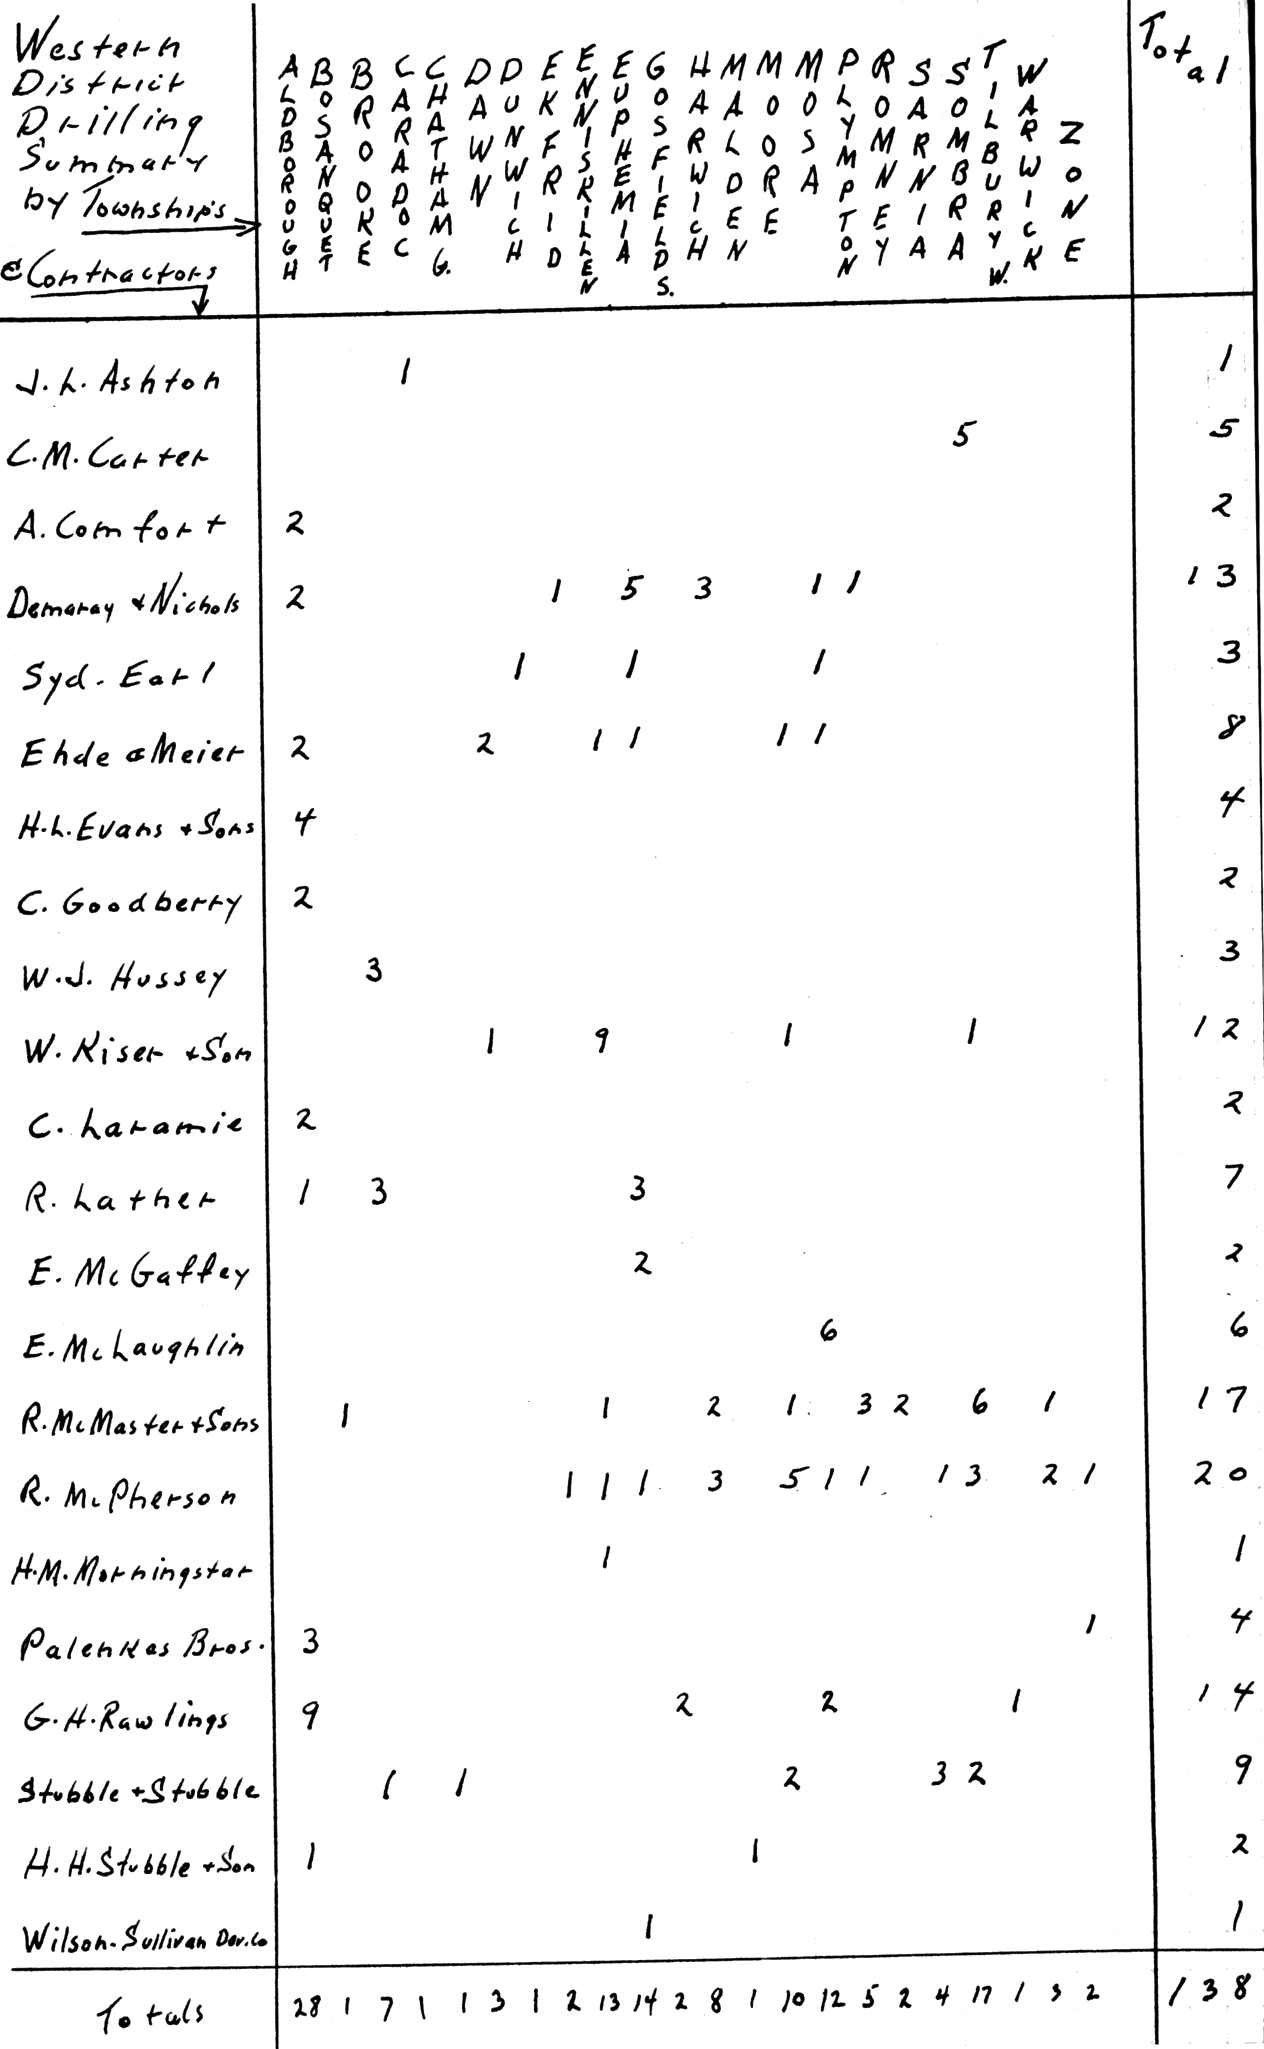 Western
District
Drilling
Summary
by Townships
& Contractors
ALDBOROUGH BOSANQUET BROOKE CARADOC CHATHAM G. DAWN DUNWICH EKFRID ENNISKILLEN EUPHEMIA GOSFIELD S. HARWICH MALDEN MOORE MOSA PLYMPTON ROMNEY SARNIA SOMBRA TILBURY W. WARWICK ZONE Total
J. L. Ashton 1 1
C. M. Carter 5 5
A. Comfort 2 2
Demaray + Nichols 2 1 5 3 1 1 13
Syd. Earl 1 1 1 3
Ehde & Meier 2 2 1 1 1 1 8
H. L. Evans + Sons 4 4
C. Goodberry 2 2
W. J. Hussey 3 3
W. Kiser + Son 1 9 1 1 12
C. Laramie 2 2
R. Lather 1 3 3 7
E. McGaffey 2 2
E. McLaughlin 6 6
R. McMaster + Sons 1 1 2 1 3 2 6 1 17
R. McPherson 1 1 1 3 5 1 1 1 3 2 1 20
H. M. Morningstar 1 1
Palenkas Bros. 3 1 4
G. H. Rawlings 9 2 2 1 14
Stubble + Stubble 1 1 2 3 2 9
H. H. Stubble + Son 1 1 2
Wilson-Sullivan Dev. Co 1 1
Totals 28 1 7 1 1 3 1 2 13 14 2 8 1 10 12 5 2 4 17 1 3 2 138